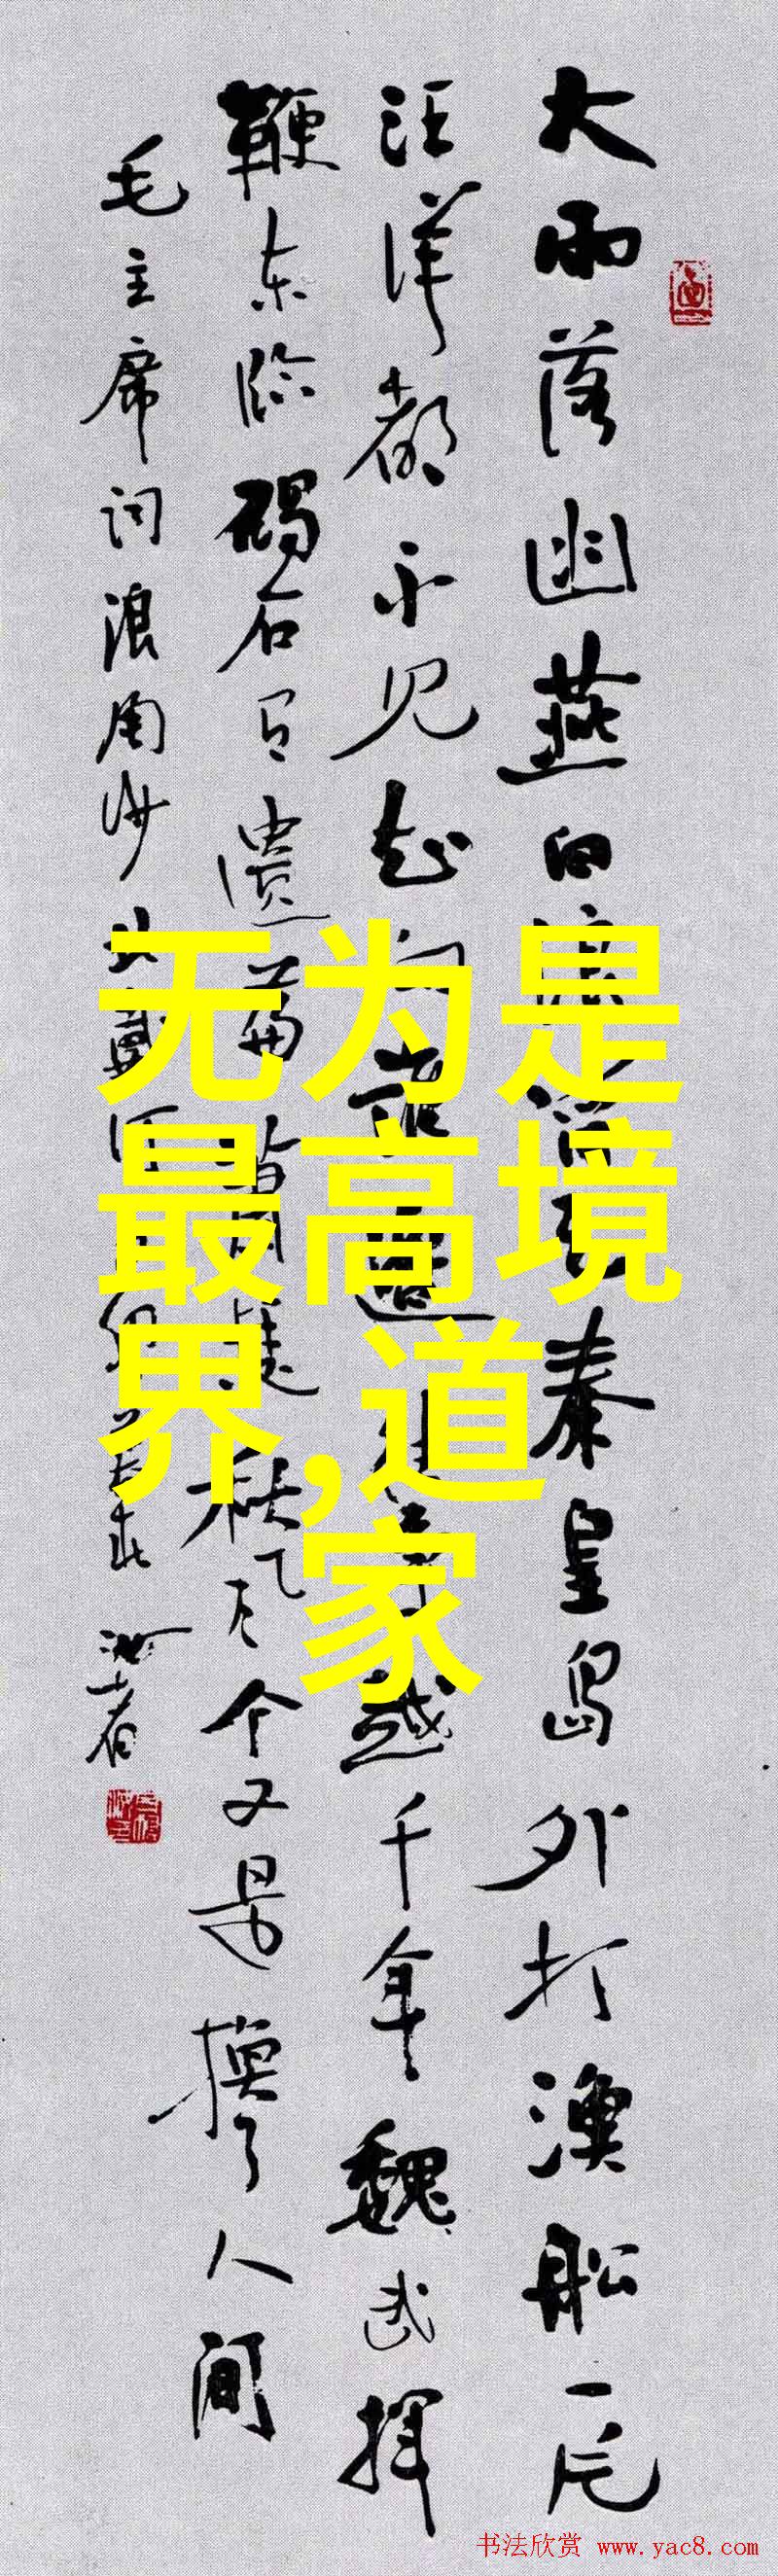 大雨落幽燕白浪滔天秦皇岛外打漁船一片
汪洋都不见知向誰邊往事越千年魏武揮
鞭东临碣石有遺篇萧瑟秋风今又是换了人间
毛主席词浪淘沙北戴河
无为是
最高境
界,道
家
书法欣赏 www.yac8.com